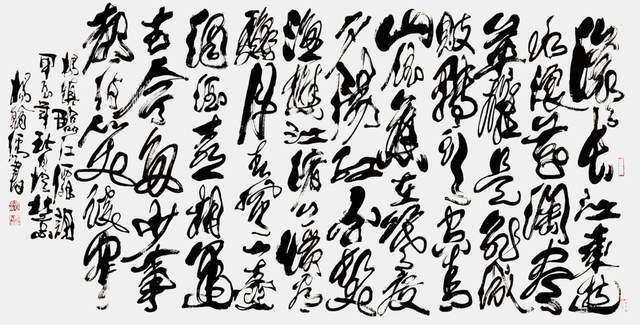 滚滚长江东逝
水浪花淘尽
英雄是非成
败转头空青
山依旧在几度
夕阳红白发
渔樵江渚上惯看
秋月春风一壶
浊酒喜相逢
古今多少事
都付笑谈中
杨慎临江仙词